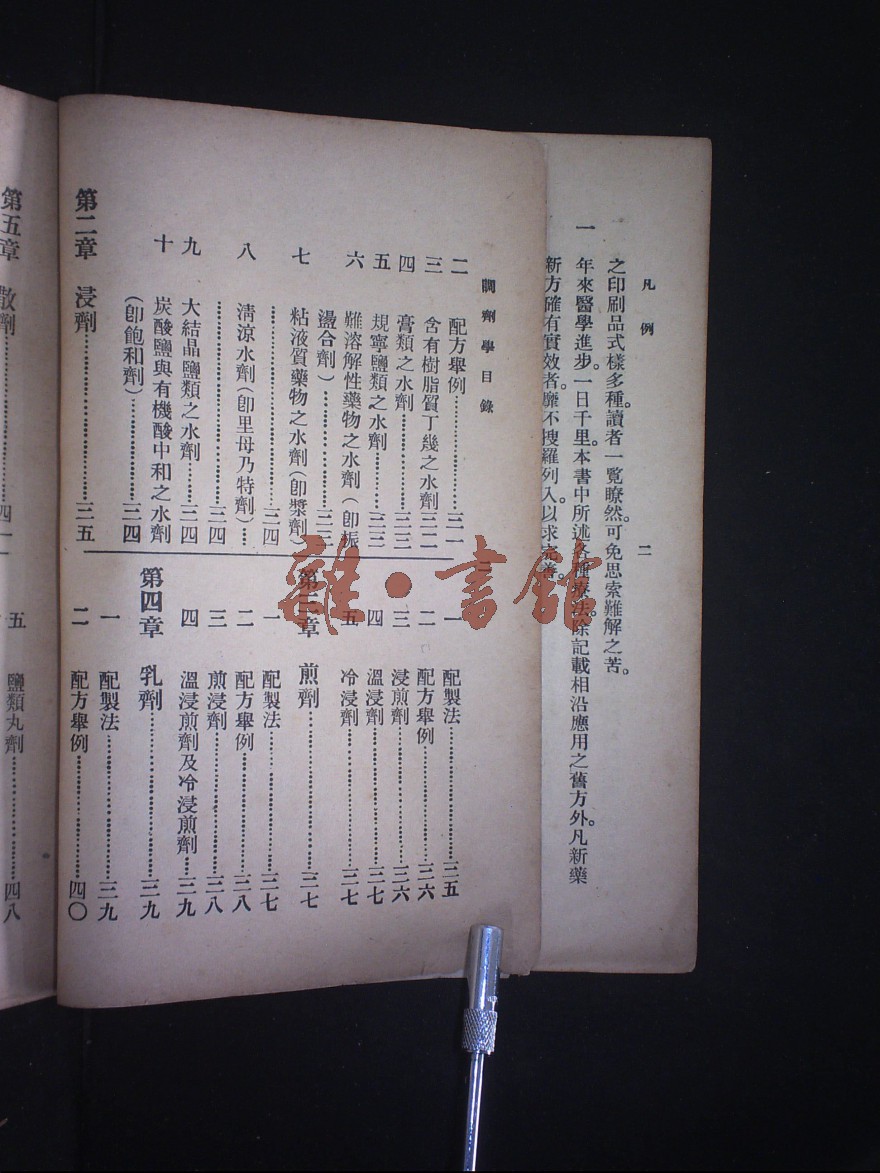 凡例
二
之印刷品式樣多種。讀者一覽瞭然。可免思索難解之苦。
一 年來醫學進步。一日千里。本書中所述各種療法。除記載相沿應用之舊方外。凡新藥
新方確有實效者。靡不搜羅列入。以求完善。
調劑學目錄
二
二 配方舉例……三一
三 含有樹脂質丁幾之水劑……三二
四 膏類之水劑……三三
五 規寧鹽類之水劑……三三
六 難溶解性藥物之水劑(卽振
盪合劑)……三三
七 粘液質藥物之水劑(卽漿劑)
……三四
八 淸涼水劑(卽里母乃特劑)…
……三四
九 大結晶鹽類之水劑……三四
十 炭酸鹽與有機酸中和之水劑
(卽飽和劑)……三四
第二章 浸劑……三五
一 配製法……三五
二 配方舉例……三六
三 浸煎劑……三六
四 溫浸劑……三七
五 冷浸劑……三七
第三章 煎劑……三七
一 配製法……三七
二 配方舉例……三八
三 煎浸劑……三八
四 溫浸煎劑及冷浸煎劑……三九
第四章 乳劑……三九
一 配製法……三九
二 配方舉例……四〇
第五章 散劑……四一
五 鹽類丸劑……四八
雜·書館